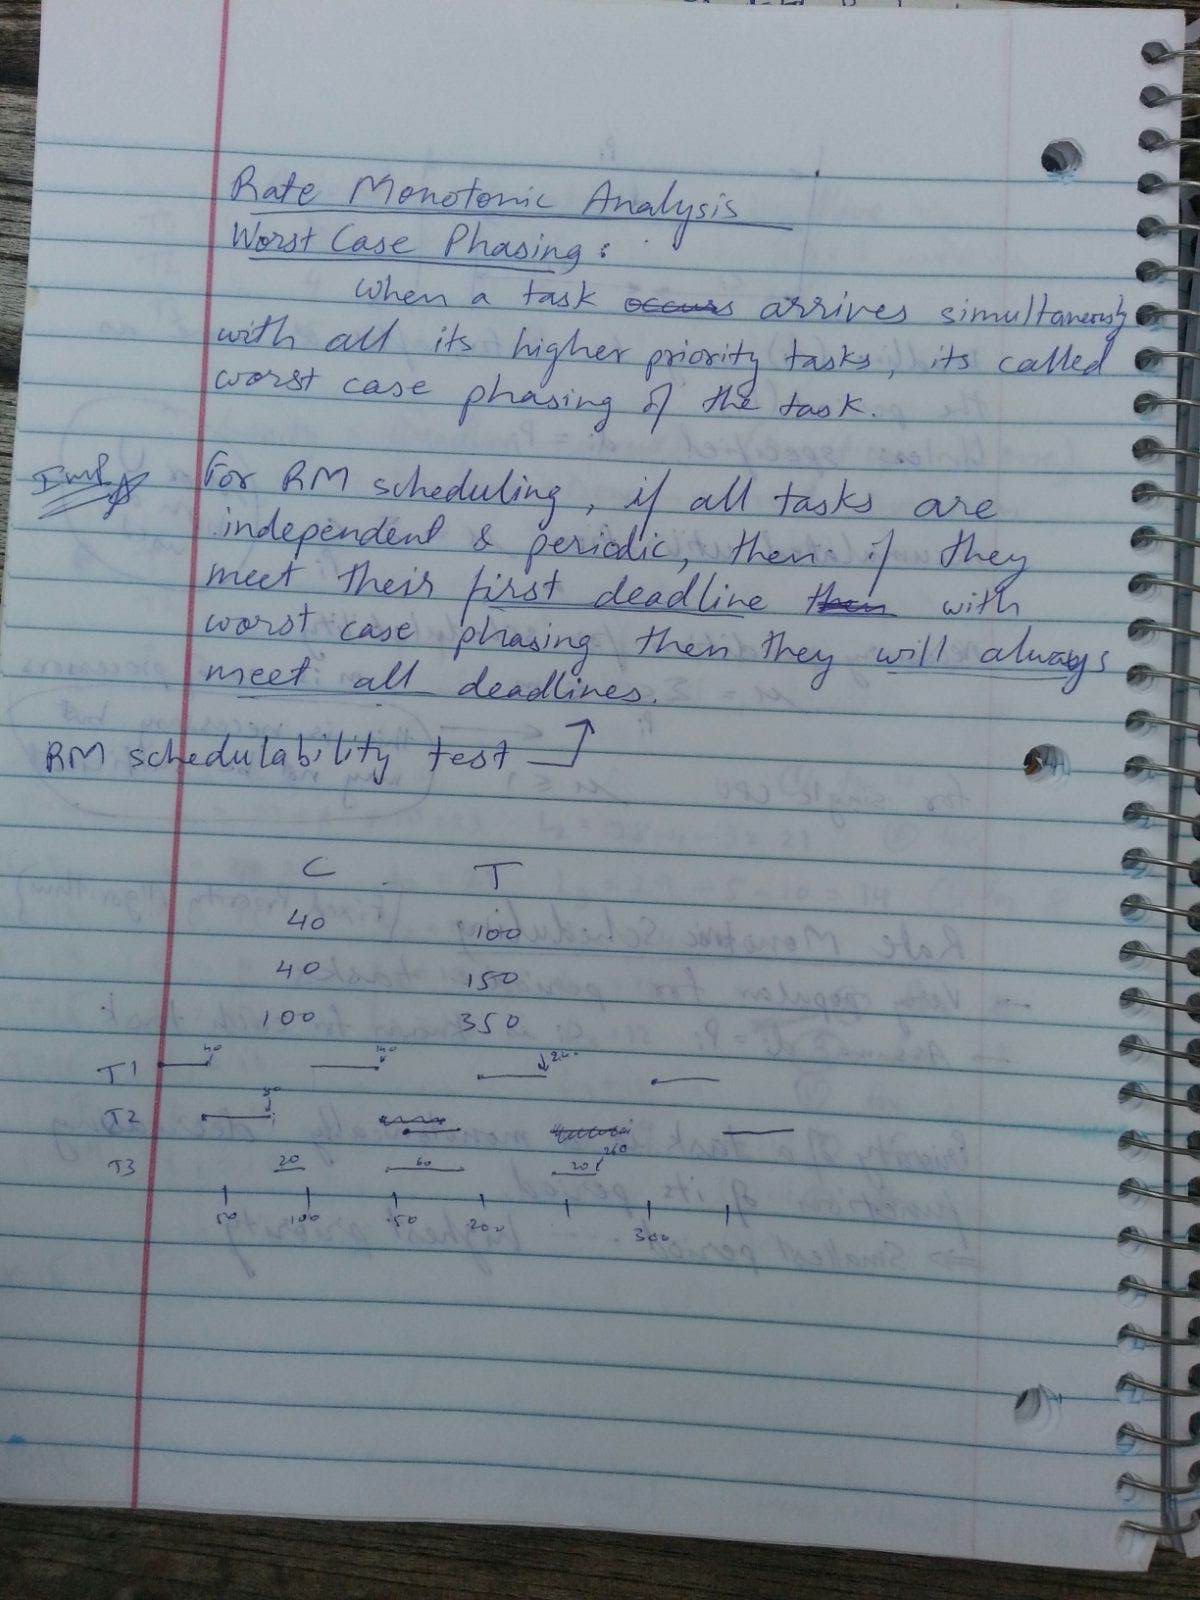 Rate Monotonic Analysis
Worst Case Phasing :
When a task occurs arrives simultaneously
with all its higher priority tasks, its called
worst case phasing of the task.
Imp For RM scheduling, if all tasks are
independent & periodic, then if they
meet their first deadline then with
worst case phasing then they will always
meet all deadlines.
RM schedulability test
C T
40 100
40 150
100 350
T1 40 140 240
T2 80
T3 20 60 20 260
50 100 150 200 300